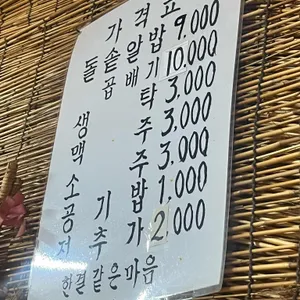 가격표
돌솥알밥 9,000
곱배기 10,000
생탁 3,000
맥주 3,000
소주 3,000
공기밥 1,000
추가 2,000
한결같은마음